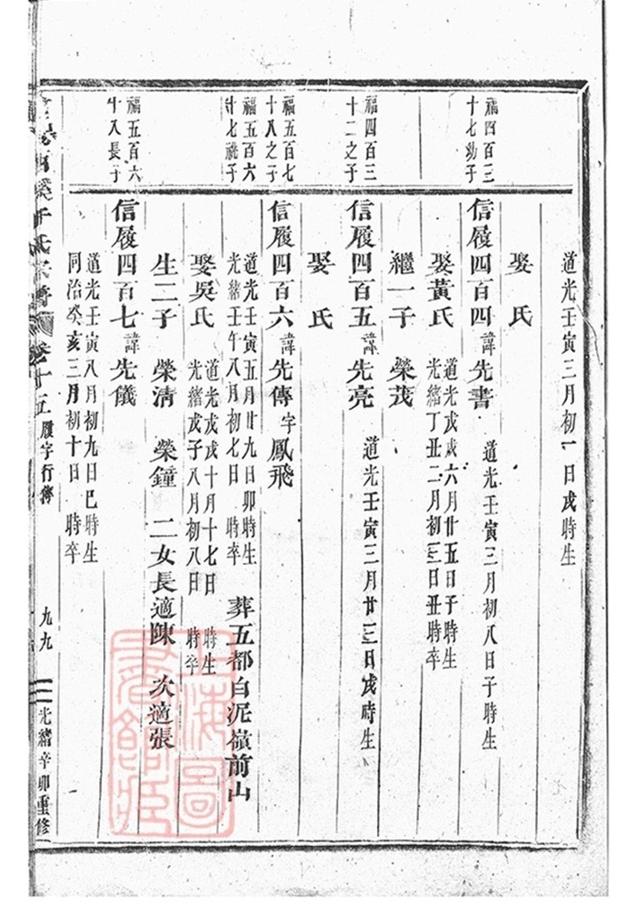 道光壬寅三月初一日戌時生
娶 氏
福四百三
十七幼子
信履四百四諱先書 道光壬寅三月初八日子時生
娶黃氏
道光戊戌六月廿五日子時生
光緒丁丑二月初三日丑時卒
繼一子 榮茂
福四百三
十二之子
信履四百五諱先亮 道光壬寅三月廿三日戌時生
娶 氏
福五百七
十八之子
信履四百六諱先傳字鳳飛
福五百六
道光壬寅五月廿九日卯時生
光緒壬午八月初七日 時卒
葬五都白泥嶺前山
娶吳氏
道光戊戌十月十七日 時生
光緒戊子八月初八日 時卒
生二子 榮清 榮鐘 二女長適陳 次適張
福五百六
十八長子
信履四百七諱先儀
道光壬寅八月初九日巳時生
同治癸亥三月初十日 時卒
卷十五
履字行傳
九九
光緒辛卯重修
上海圖書館藏